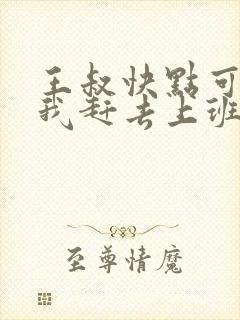 王叔快點可
我赶去上班
至尊情魔